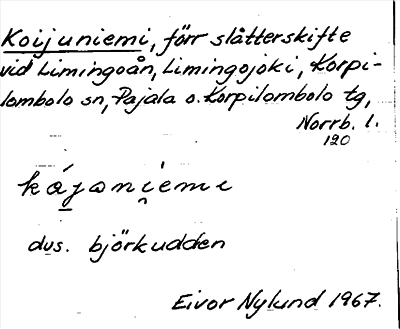 Koijuniemi, förr slåtterskifte
vid Limingoån, Limingojoki, Korpi-
lombolo sn, Pajala o. Korpilombolo tg,
Norrb. l.
120
dvs. björkudden
Eivor Nylund 1967.